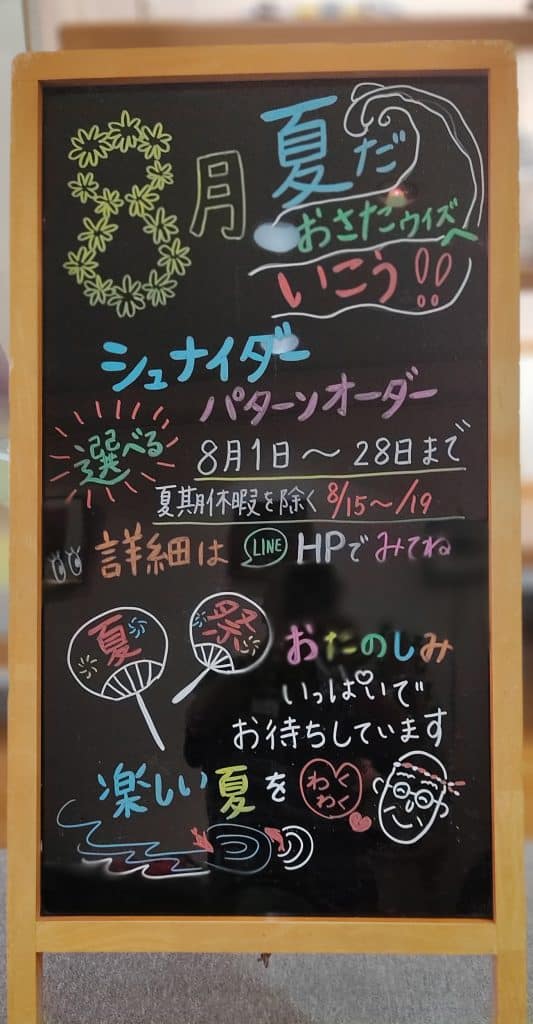 8月
夏だ
おさだウィズへ
いこう!!
シュナイダー
パターンオーダー
選べる
8月1日〜28日まで
夏期休暇を除く 8/15〜/19
詳細は LINE HPでみてね
夏 祭
おたのしみ
いっぱいで
お待ちしています
楽しい夏を わくわく